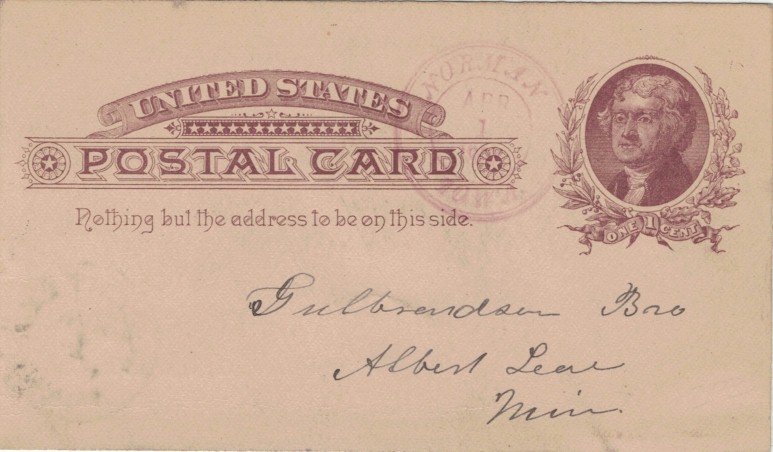 UNITED STATES
POSTAL CARD
Nothing but the address to be on this side.
NORMAN
APR
1
IOWA.
ONE 1 CENT
Gulbrandsen Bro
Albert Lea
Min.